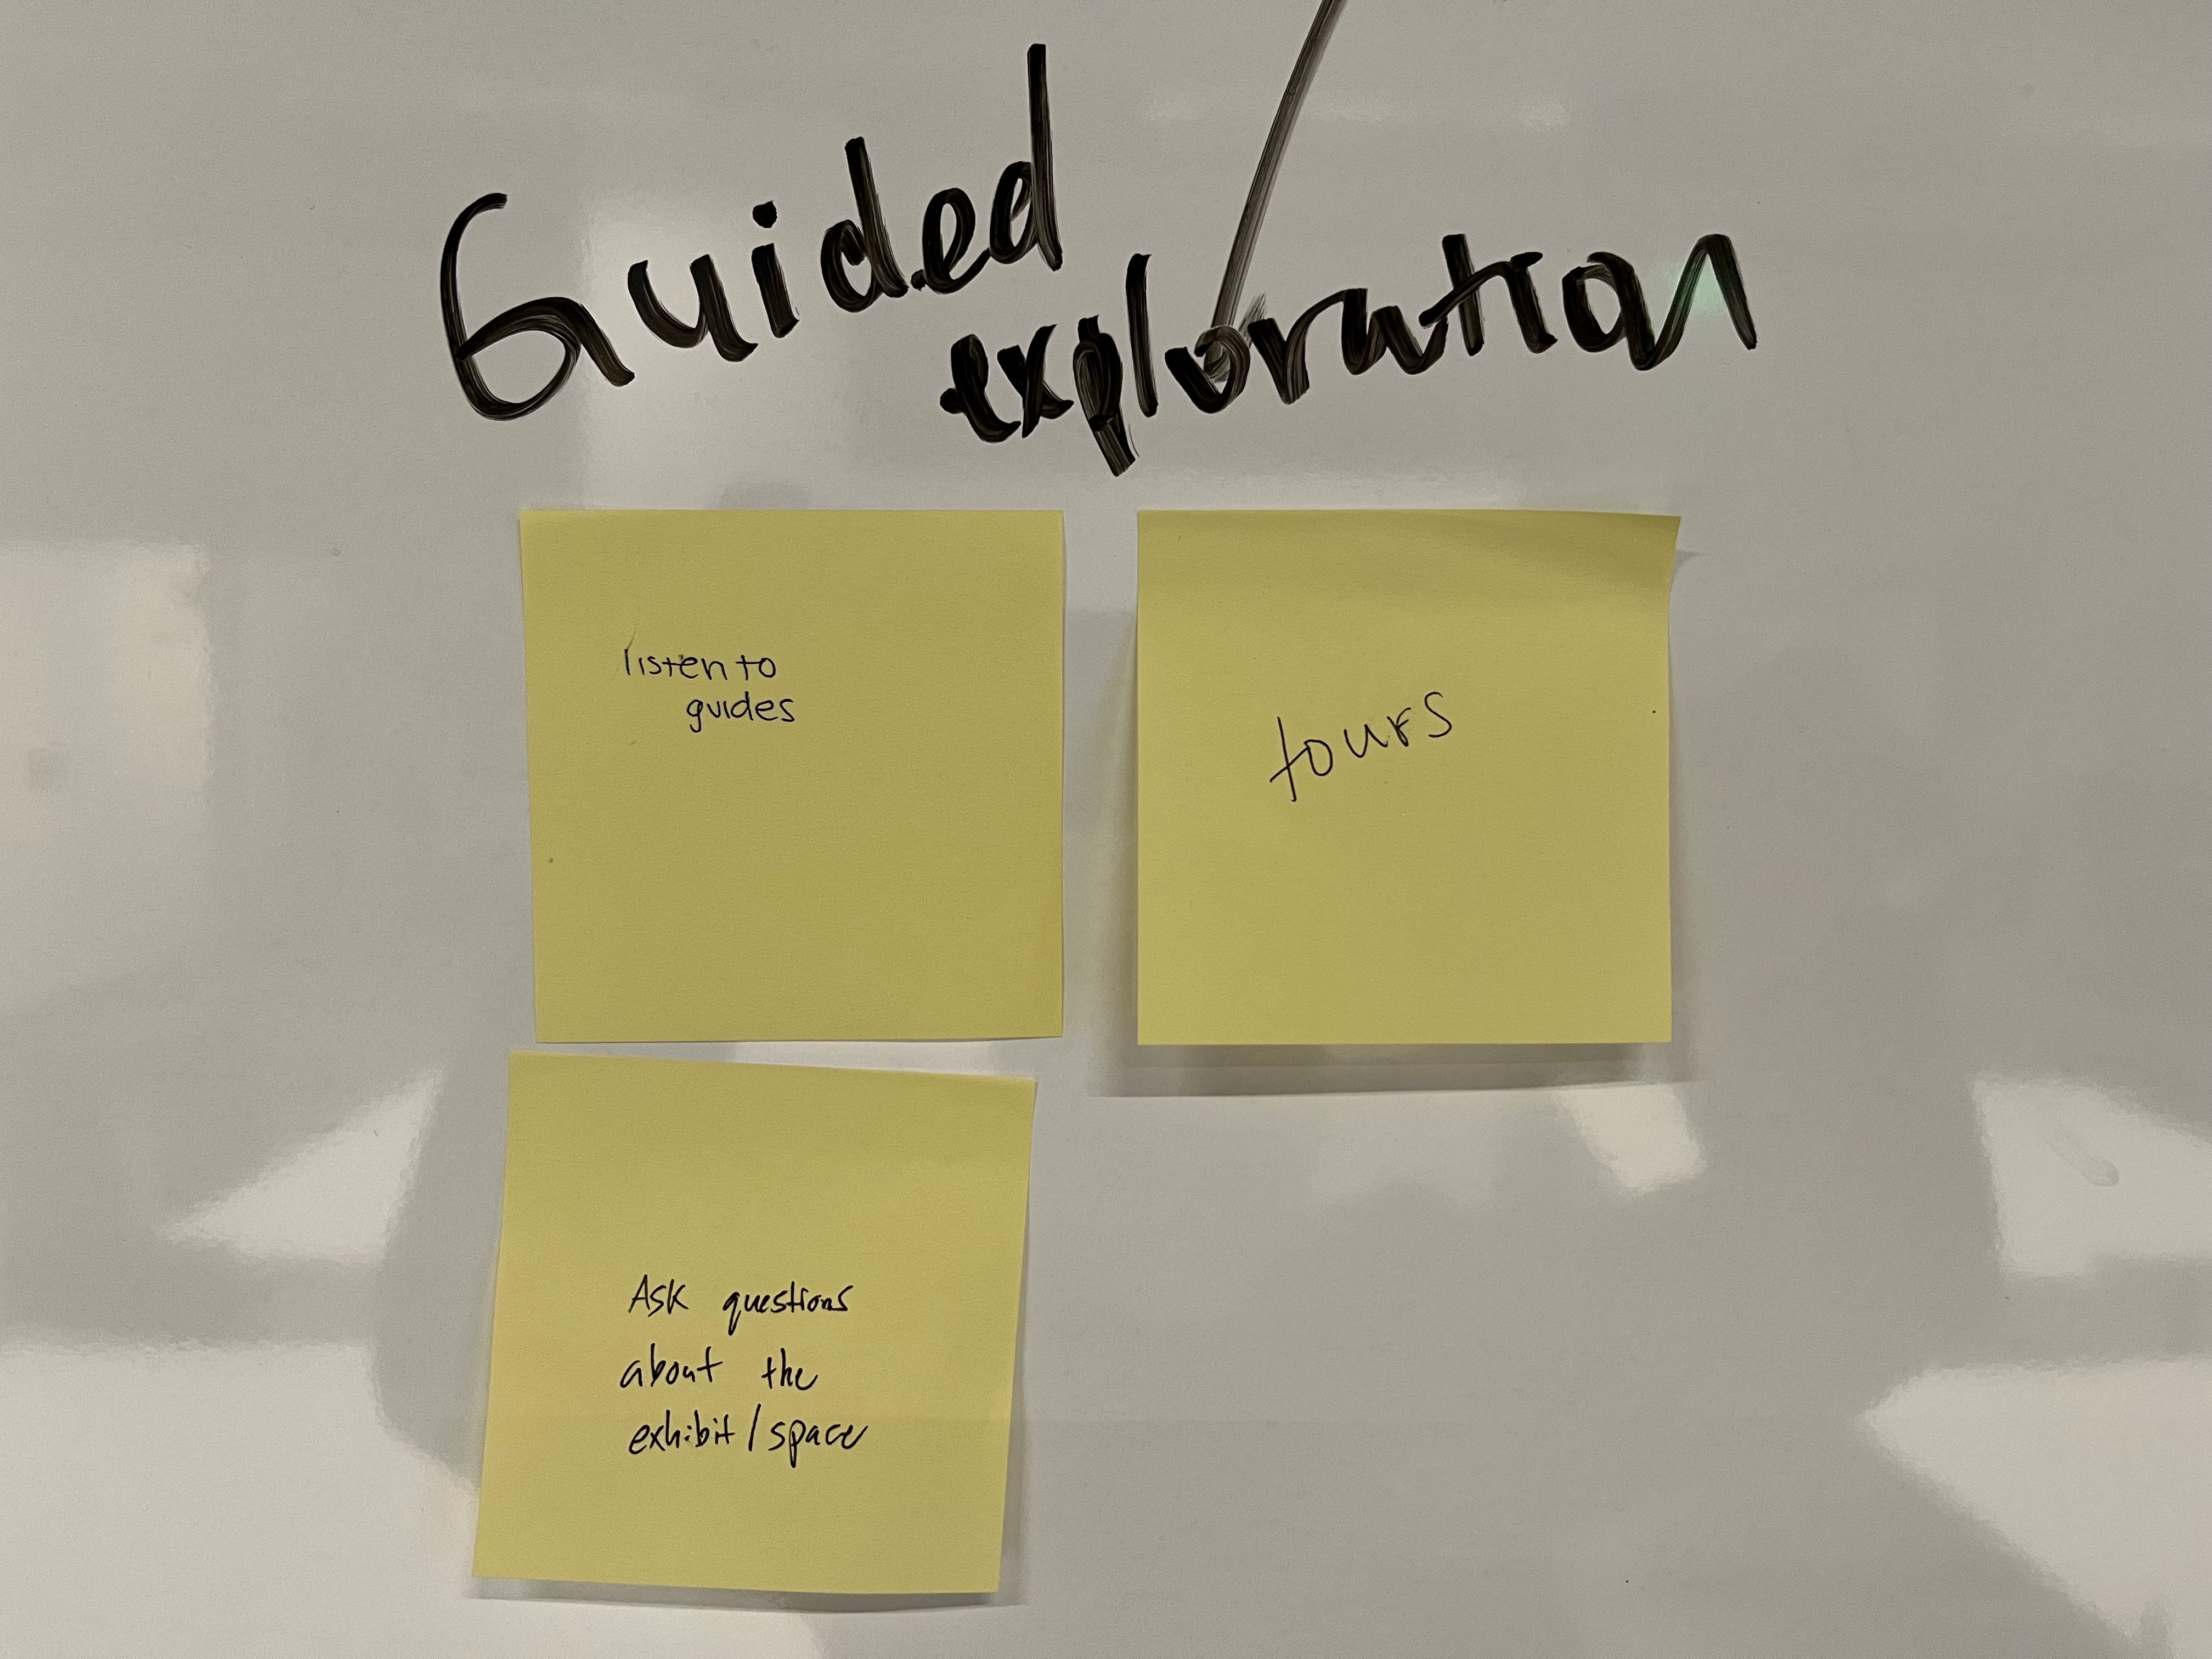 Guided
exploration
listen to
guides
tours
Ask questions
about the
exhibit/space